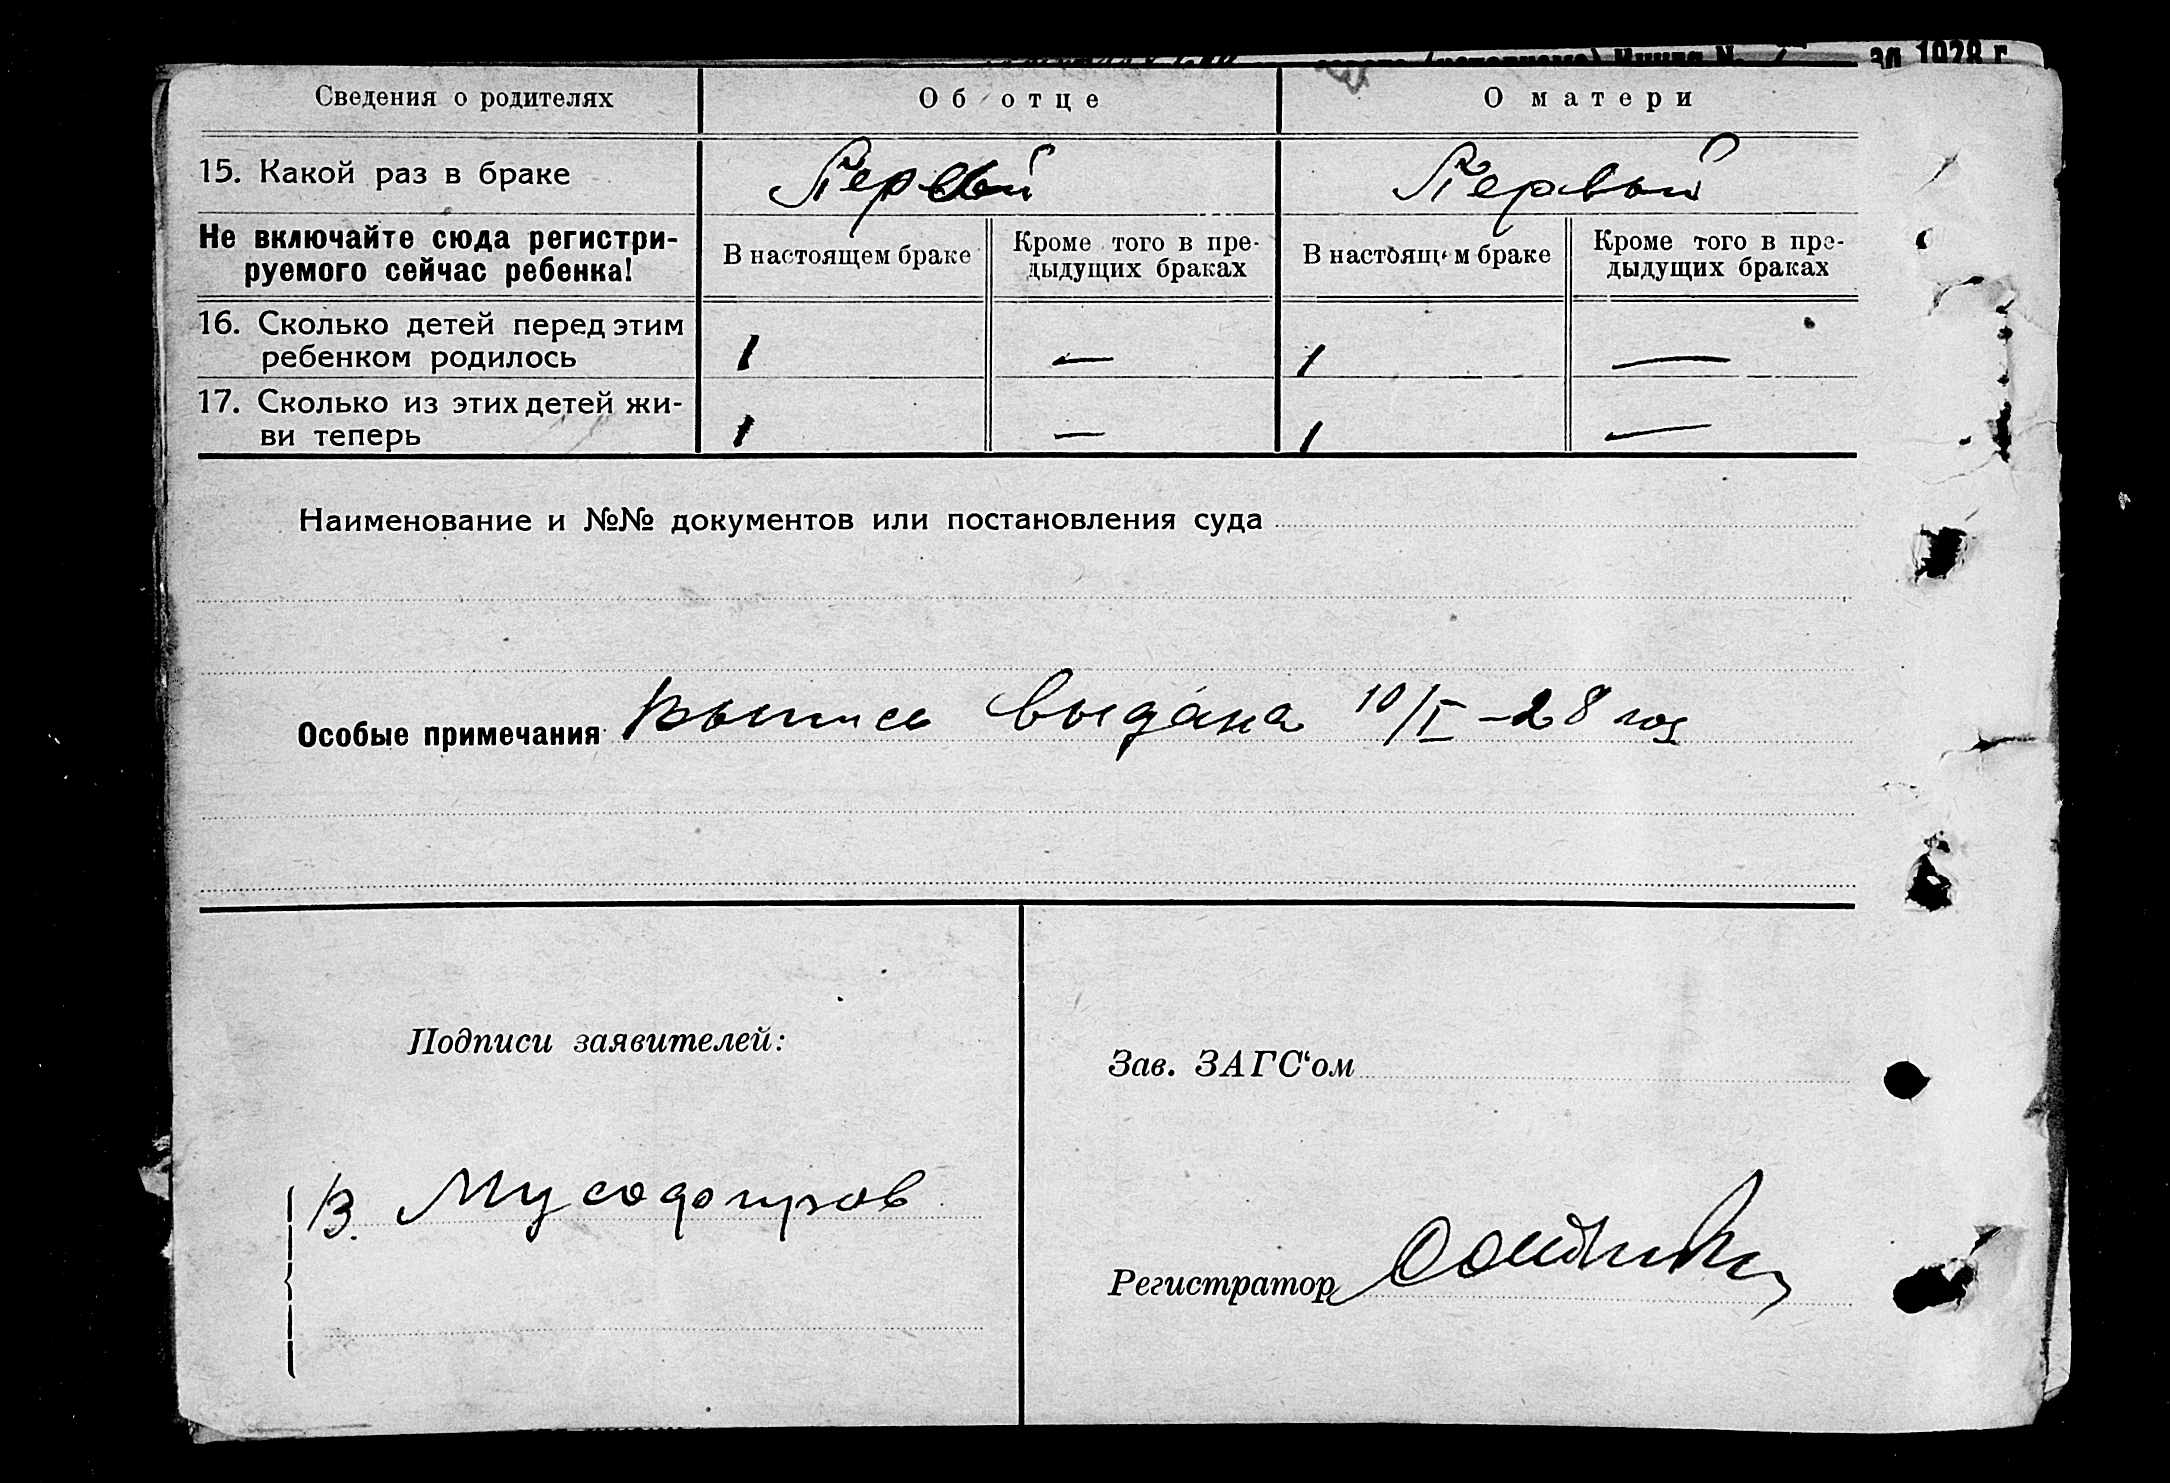 за 1928 г.
Сведения о родителях Об отце О матери
15. Какой раз в браке Первый Первый
Не включайте сюда регистри-
руемого сейчас ребенка!
В настоящем браке Кроме того в пре-
дыдущих браках
В настоящем браке Кроме того в пре-
дыдущих браках
16. Сколько детей перед этим
ребенком родилось 1 — 1 —
17. Сколько из этих детей жи-
ви теперь 1 — 1 —
Наименование и №№ документов или постановления суда
Особые примечания Выпись выдана 10/I-28 год
Подписи заявителей:
Зав. ЗАГС‘ом
В.
Регистратор